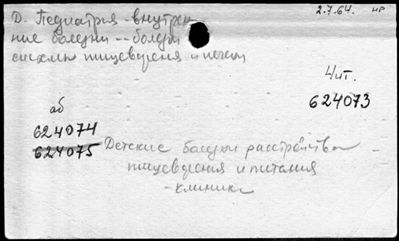 Д. Педиатрия - внутрен
ние болезни -- болезни
системы пищеварения и печени
2.7.64. нр
4/ит.
624073
аб
624074
624075 Детские болезни расстройства
пищеварения и питания
- клиника